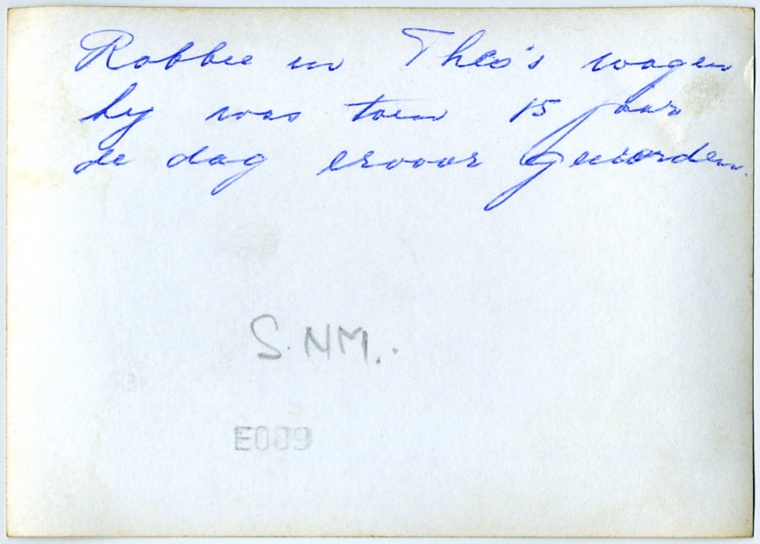 Robbie in Theo's wagen
hy was toen 15 jaar
de dag ervoor geworden.
S.NM..
E009